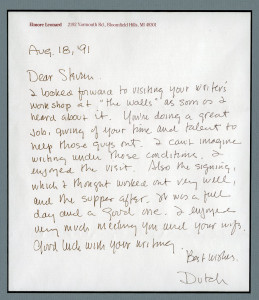 Elmore Leonard 2192 Yarmouth Rd., Bloomfield Hills, MI 48301
Aug. 18, '91
Dear
I looked forward to visiting your writers'
workshop at "the walls" as soon as I
heard about it. You're doing a great
job, giving of your time and talent to
help those guys out. I can't imagine
writing under those conditions. I
enjoyed the visit. Also the signing,
which I thought worked out very well,
and the supper after. It was a full
day and a good one. I enjoyed
very much meeting you and your wife.
Good luck with your writing.
Best wishes,
Dutch